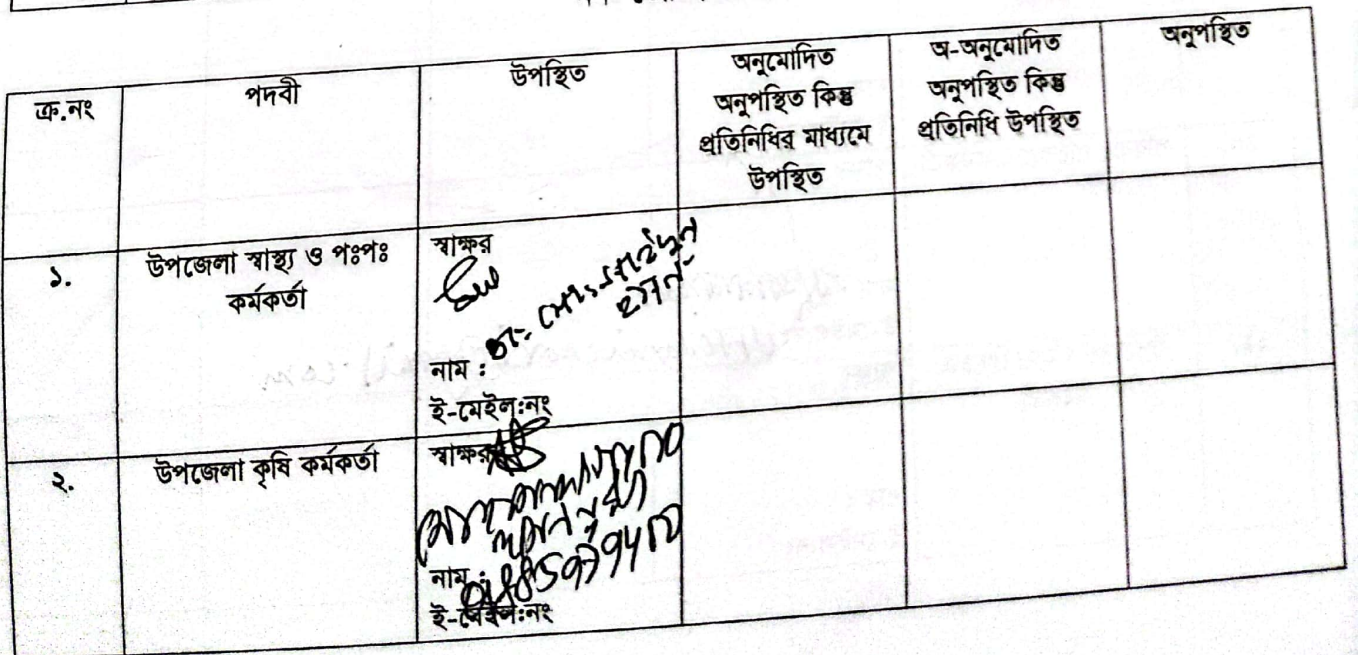 ক্র.নং
পদবী
উপস্থিত
অনুমোদিত
অনুপস্থিত কিন্তু
প্রতিনিধির মাধ্যমে
উপস্থিত
অ-অনুমোদিত
অনুপস্থিত কিন্তু
প্রতিনিধি উপস্থিত
অনুপস্থিত
১.
উপজেলা স্বাস্থ্য ও পঃপঃ
কর্মকর্তা
স্বাক্ষর
ডাঃ মোঃ
নাম :
ই-মেইল:নং
২.
উপজেলা কৃষি কর্মকর্তা
স্বাক্ষর
নাম :
ই-মেইল:নং